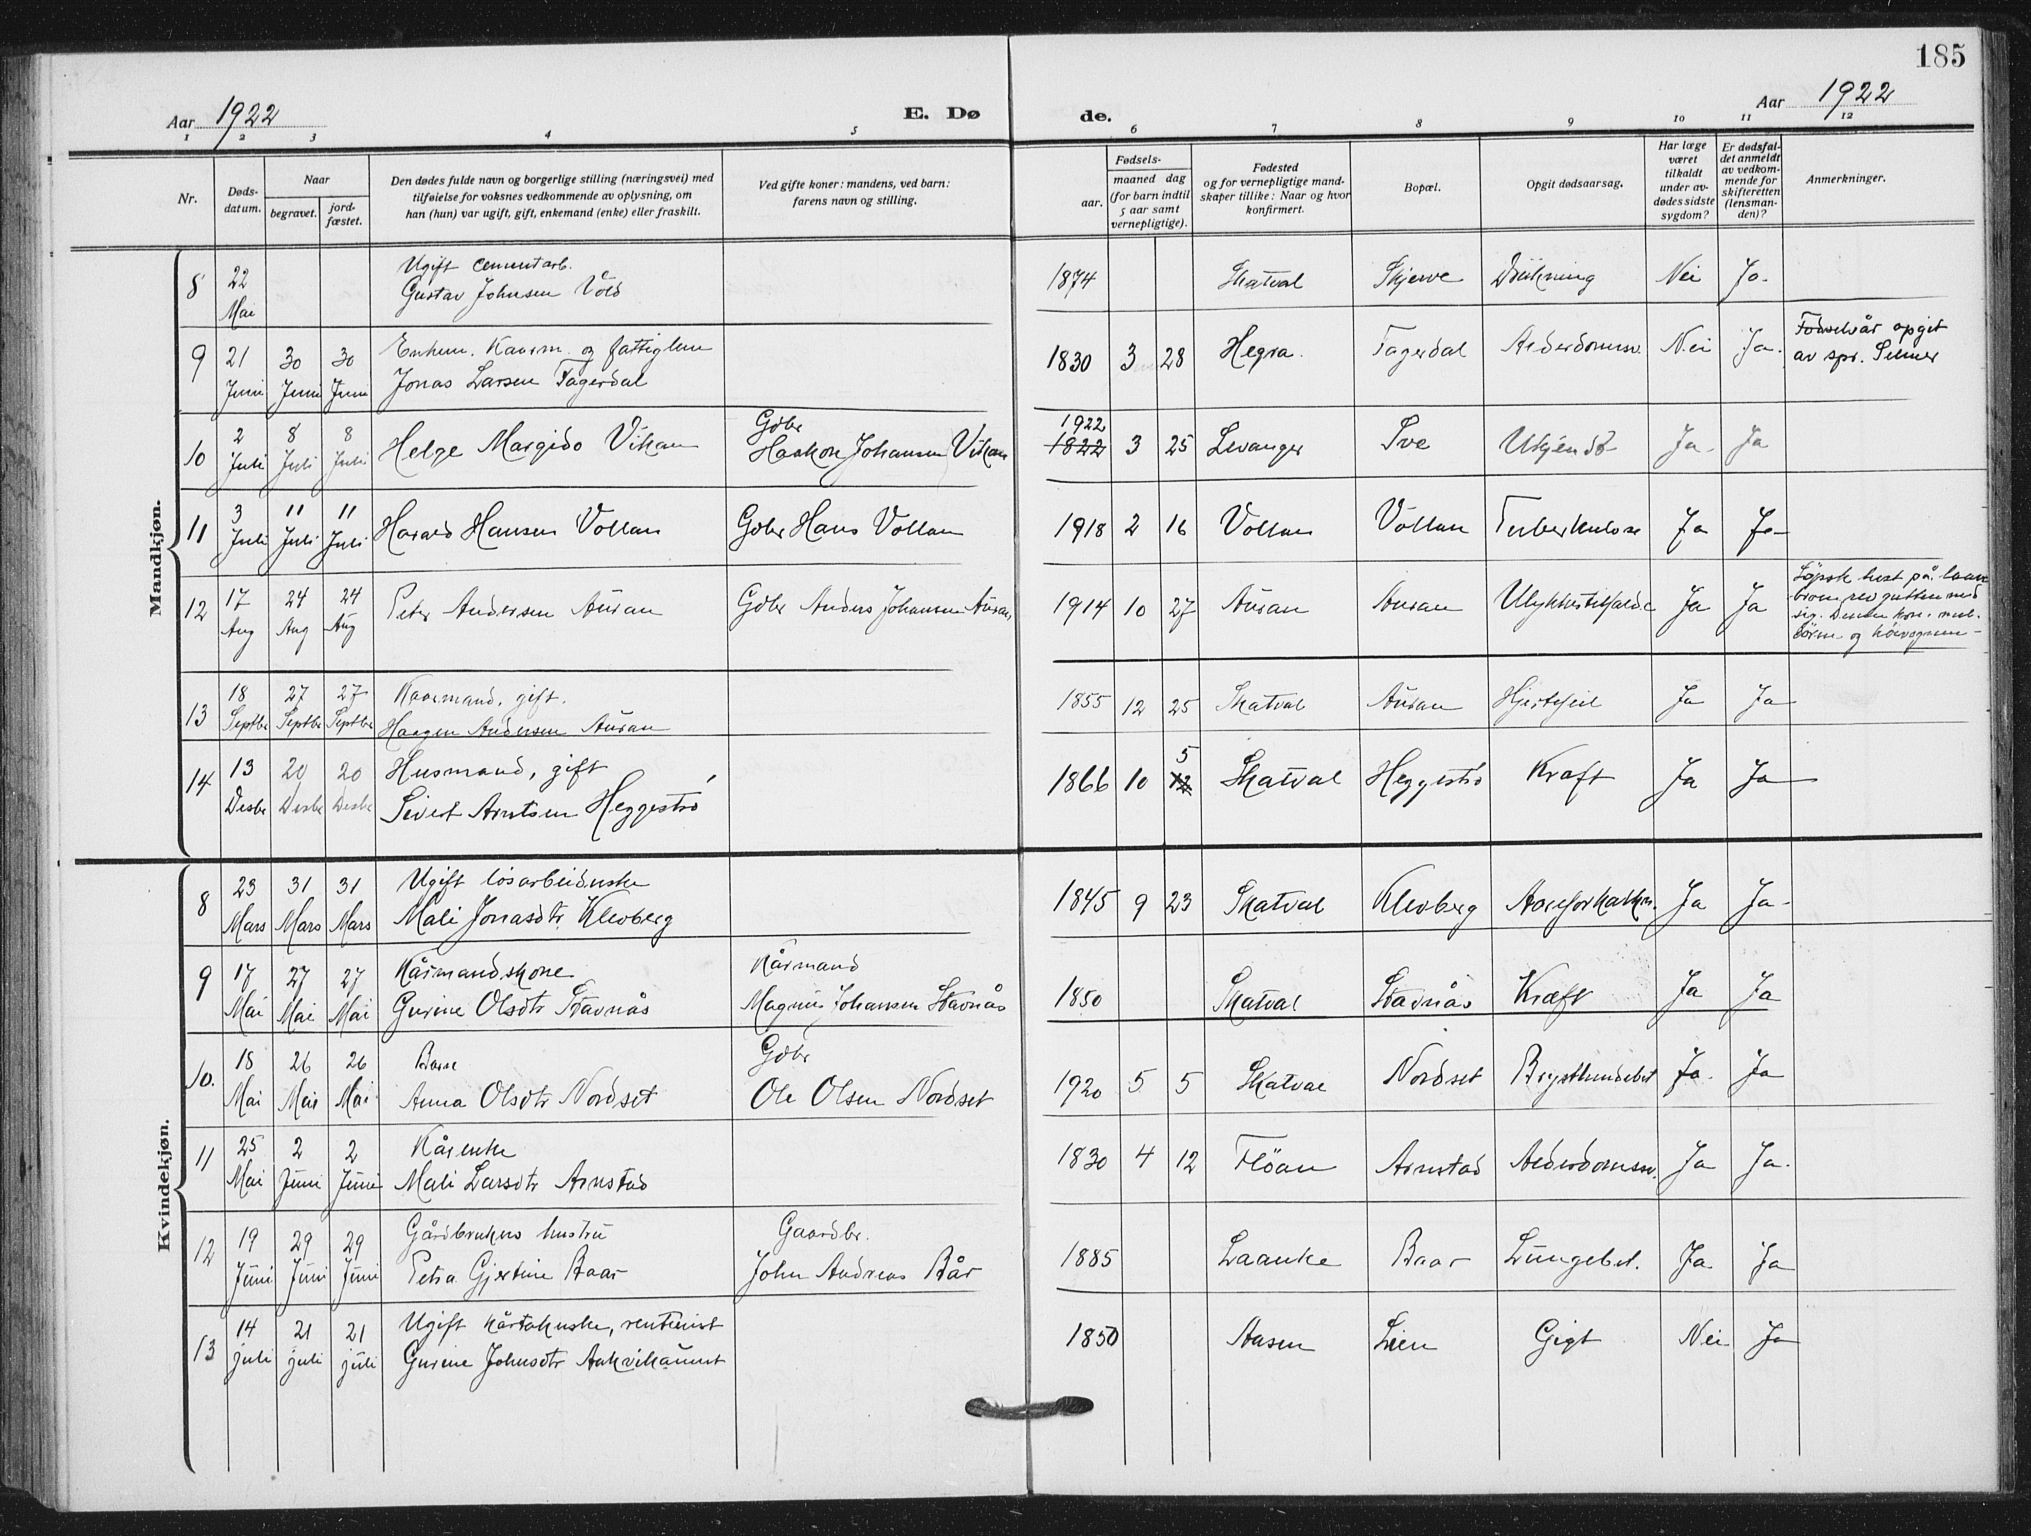 185
Aar 1922
E. Dø
de.
Aar 1922
1 2 3 4 5 6 7 8 9 10 11 12
Nr.
Døds-
datum.
Naar
begravet.
jord-
fæstet.
Den dødes fulde navn og borgerlige stilling (næringsvei) med
tilføielse for voksnes vedkommende av oplysning, om
han (hun) var ugift, gift, enkemand (enke) eller fraskilt.
Ved gifte koner: mandens, ved barn:
farens navn og stilling.
Fødsels-
aar.
maaned dag
(for barn indtil
5 aar samt
vernepligtige).
Fødested
og for vernepligtige mand-
skaper tillike: Naar og hvor
konfirmert.
Bopæl.
Opgit dødsaarsag.
Har læge
været
tilkaldt
under av-
dødes sidste
sygdom?
Er dødsfal-
det anmeldt
av vedkom-
mende for
skifteretten
(lensman-
den)?
Anmerkninger.
Mandkjøn.
8 22 Mai
Ugift cementarb.
Gustav Johnsen Vold
1874 Skatval Skjerve Drukning Nei Ja.
9 21 Juni 30 Juni 30 Juni
Enkem. Kaarm. og fattiglem
Jonas Larsen Fagerdal
1830 3 28 Hegra. Fagerdal Alderdomssv. Nei Ja.
Fødselsår opgit
av spr. Selmer
10 2 Juli 8 Juli 8 Juli
Helge Margido Vikan
Gdbr
Haakon Johansen Vikan
1922
1822 3 25 Levanger Sve Ukjendt Ja. Ja
11 3 Juli 11 Juli 11 Juli
Harald Hansen Vollan
Gdbr Hans Vollan
1918 2 16 Vollan Vollan Tuberkulose Ja Ja
12 17 Aug 24 Aug 24 Aug
Peter Andersen Auran
Gdbr Anders Johansen Auran
1914 10 27 Auran Auran Ulykkestilfælde Ja Ja
Løpsk hest på
rev gutten med
sig.
og
13 18 Septbr 27 Septbr 27 Septbr
Kaarmand, gift.
Haagen Andersen Auran
1855 12 25 Skatval Auran Hjertefeil Ja Ja
14 13 Desbr 20 Desbr 20 Desbr
Husmand, gift
Sivert Arntsen Heggestrø
5
1866 10 12 Skatval Heggestrø Kræft Ja Ja
Kvindekjøn.
8 23 Mars 31 Mars 31 Mars
Ugift løsarbeiderske
Mali Jonasdtr Klevberg
1845 9 23 Skatval Klevberg Aareforkalkn. Ja Ja.
9 17 Mai 27 Mai 27 Mai
Kårmandskone
Gurine Olsdtr Stavnås
Kårmand
Magnus Johansen Stavnås
1850 Skatval Stavnås Kræft Ja Ja
10. 18 Mai 26 Mai 26 Mai
Barn
Anna Olsdtr Nordset
Gdbr
Ole Olsen Nordset
1920 5 5 Skatval Nordset Brysthindebet Ja. Ja
11 25 Mai 2 Juni 2 Juni
Kårenke
Mali Larsdtr Arnstad
1830 4 12 Fløan Arnstad Alderdomssv. Ja Ja.
12 19 Juni 29 Juni 29 Juni
Gårdbrukers hustru
Petra Gjertine Baar
Gaardbr.
John Andreas Bår
1885 Laanke Baar Lungebet. Ja Ja
13 14 juli 21 juli 21 juli
Ugift kårtakerske, rentenist
Gurine Johnsdtr Aakvikaunet
1850 Aasen Lien Gigt Nei Ja